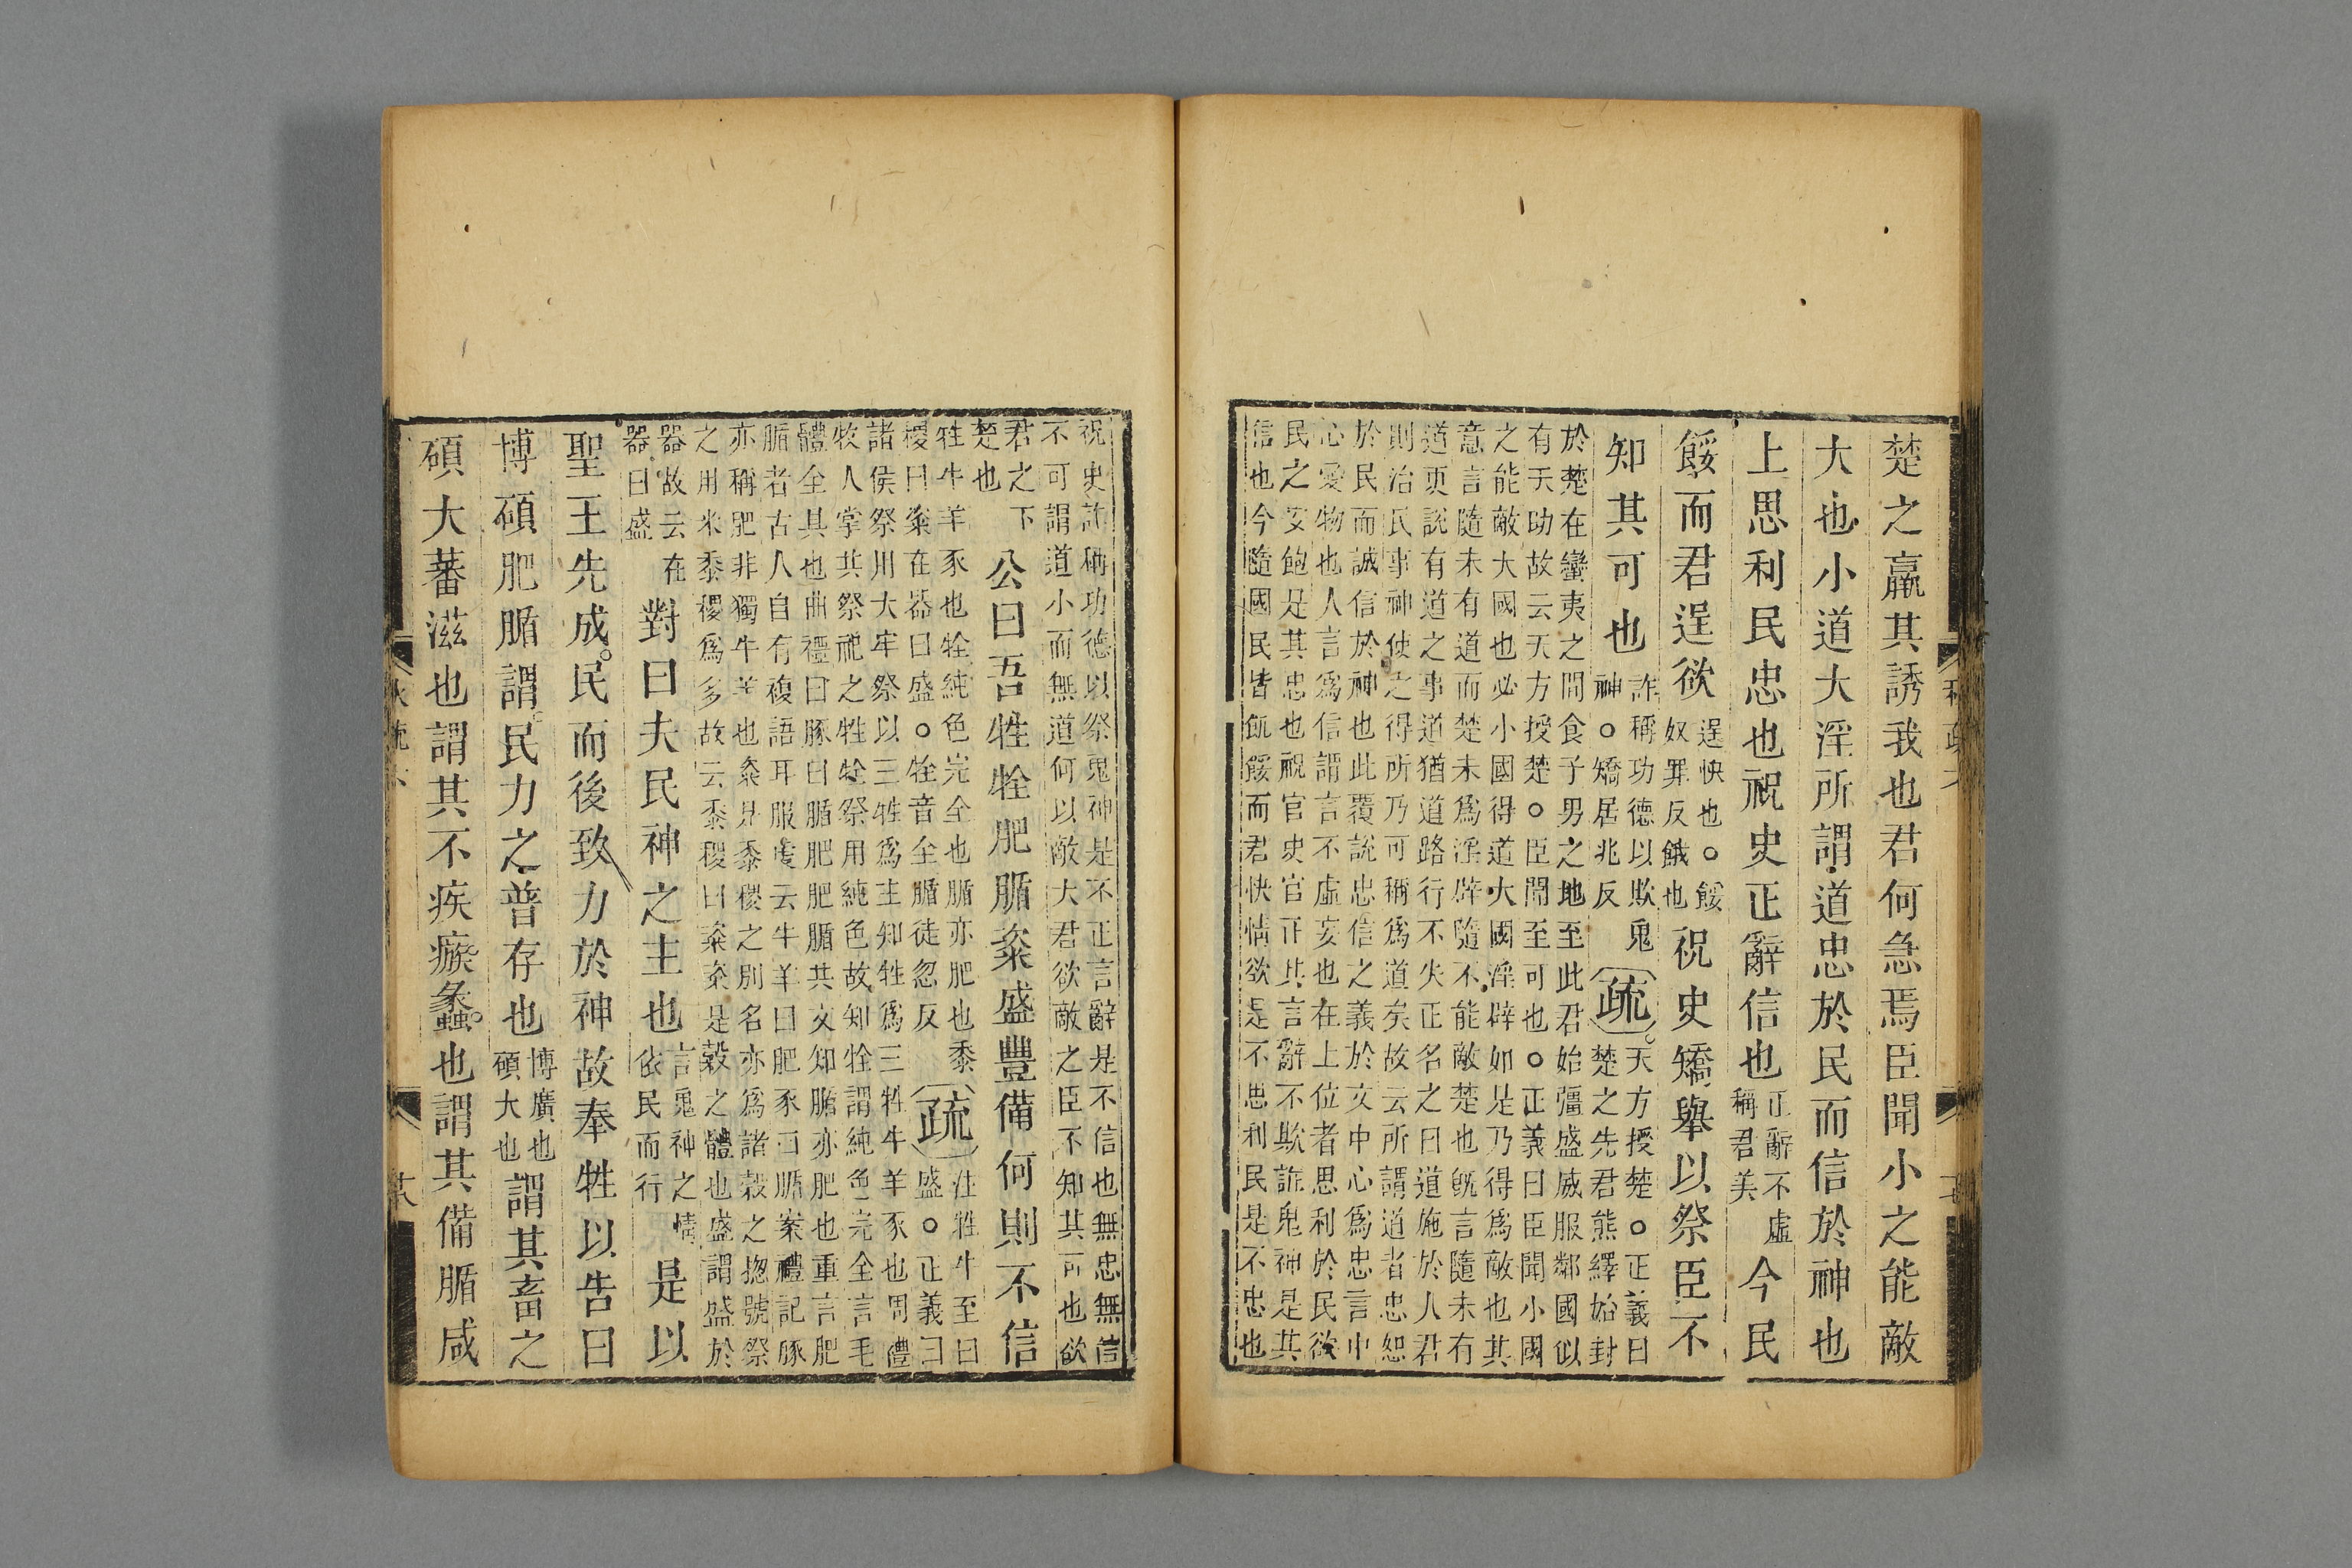 楚之羸其誘我也君何急焉臣聞小之能敵
大也小道大淫所謂道忠於民而信於神也
上思利民忠也祝史正辭信也正辭不虛稱君美今民
餒而君逞欲逞快也○餒奴罪反餓也祝史矯舉以祭臣不
知其可也詐稱功德以欺鬼神○矯居兆反疏天方授楚○正義曰楚之先君熊繹始封
於楚在蠻夷之間食子男之地至此君始彊盛威服鄰國似
有天助故云天方授楚○臣聞至可也○正義曰臣聞小國
之能敵大國也必小國得道大國淫辟如是乃得為敵也其
意言隨未有道而楚未為淫辟隨不能敵楚也既言隨未有
道更說有道之事道猶道路行不失正名之曰道施於人君
則治民事神使之得所乃可稱為道矣故云所謂道者忠恕
於民而誠信於神也此覆說忠信之義於文中心為忠言中
心愛物也人言為信謂言不虛妄也在上位者思利於民欲
民之安飽是其忠也祝官史官正其言辭不欺誑鬼神是其
信也今隨國民皆飢餒而君快情欲是不思利民是不忠也
祝史詐稱功德以祭鬼神是不正言辭是不信也無忠無信
不可謂道小而無道何以敵大君欲敵之臣不知其可也欲
君之下楚也公曰吾牲牷肥腯粢盛豐備何則不信
牲牛羊豕也牷純色完全也腯亦肥也黍稷曰粢在器曰盛○牷音全腯徒忽反疏注牲牛至曰盛○正義曰
諸侯祭用大牢祭以三牲為主知牲為三牲牛羊豕也周禮
牧人掌共祭祀之牲牷祭用純色故知牷謂純色完全言毛
體全具也曲禮曰豚曰腯肥肥腯共文知腯亦肥也重言肥
腯者古人自有複語耳服虔云牛羊曰肥豕曰腯案禮記豚
亦稱肥非獨牛羊也粢是黍稷之別名亦為諸穀之揔號祭
之用米黍稷為多故云黍稷曰粢粢是穀之體也盛謂盛於
器故云在器曰盛對曰夫民神之主也言鬼神之情依民而行是以
聖王先成民而後致力於神故奉牲以告曰
博碩肥腯謂民力之普存也博廣也碩大也謂其畜之
碩大蕃滋也謂其不疾瘯蠡也謂其備腯咸